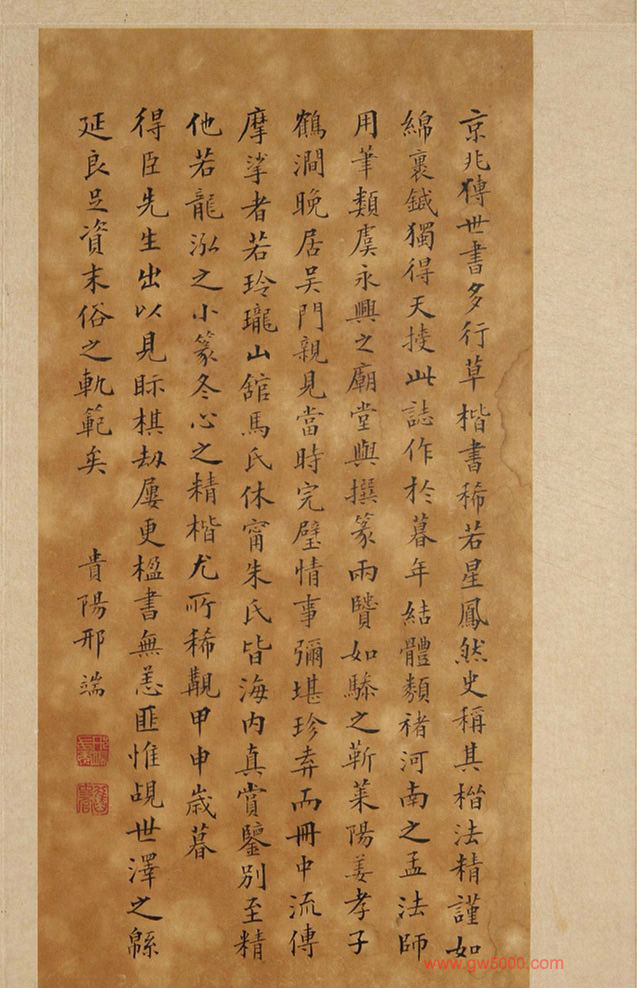 京兆傳世書多行草楷書稀若星鳳然史稱其楷法精謹如
綿裏鍼獨得天挍此誌作於暮年結體類褚河南之孟法師
用筆類虞永興之廟堂與撰篆兩贊如驂之靳萊陽姜孝子
鶴澗晚居吴門親見當時完璧情事彌堪珍弆而冊中流傳
摩挲者若玲瓏山舘馬氏休甯朱氏皆海内真賞鑒别至精
他若龍泓之小篆冬心之精楷尤所稀覯甲申歲暮
得臣先生出以見眎棋劫屢更楹書無恙匪惟覘世澤之緜
延良足資末俗之軌範矣 貴陽邢端
www.gw5000.com